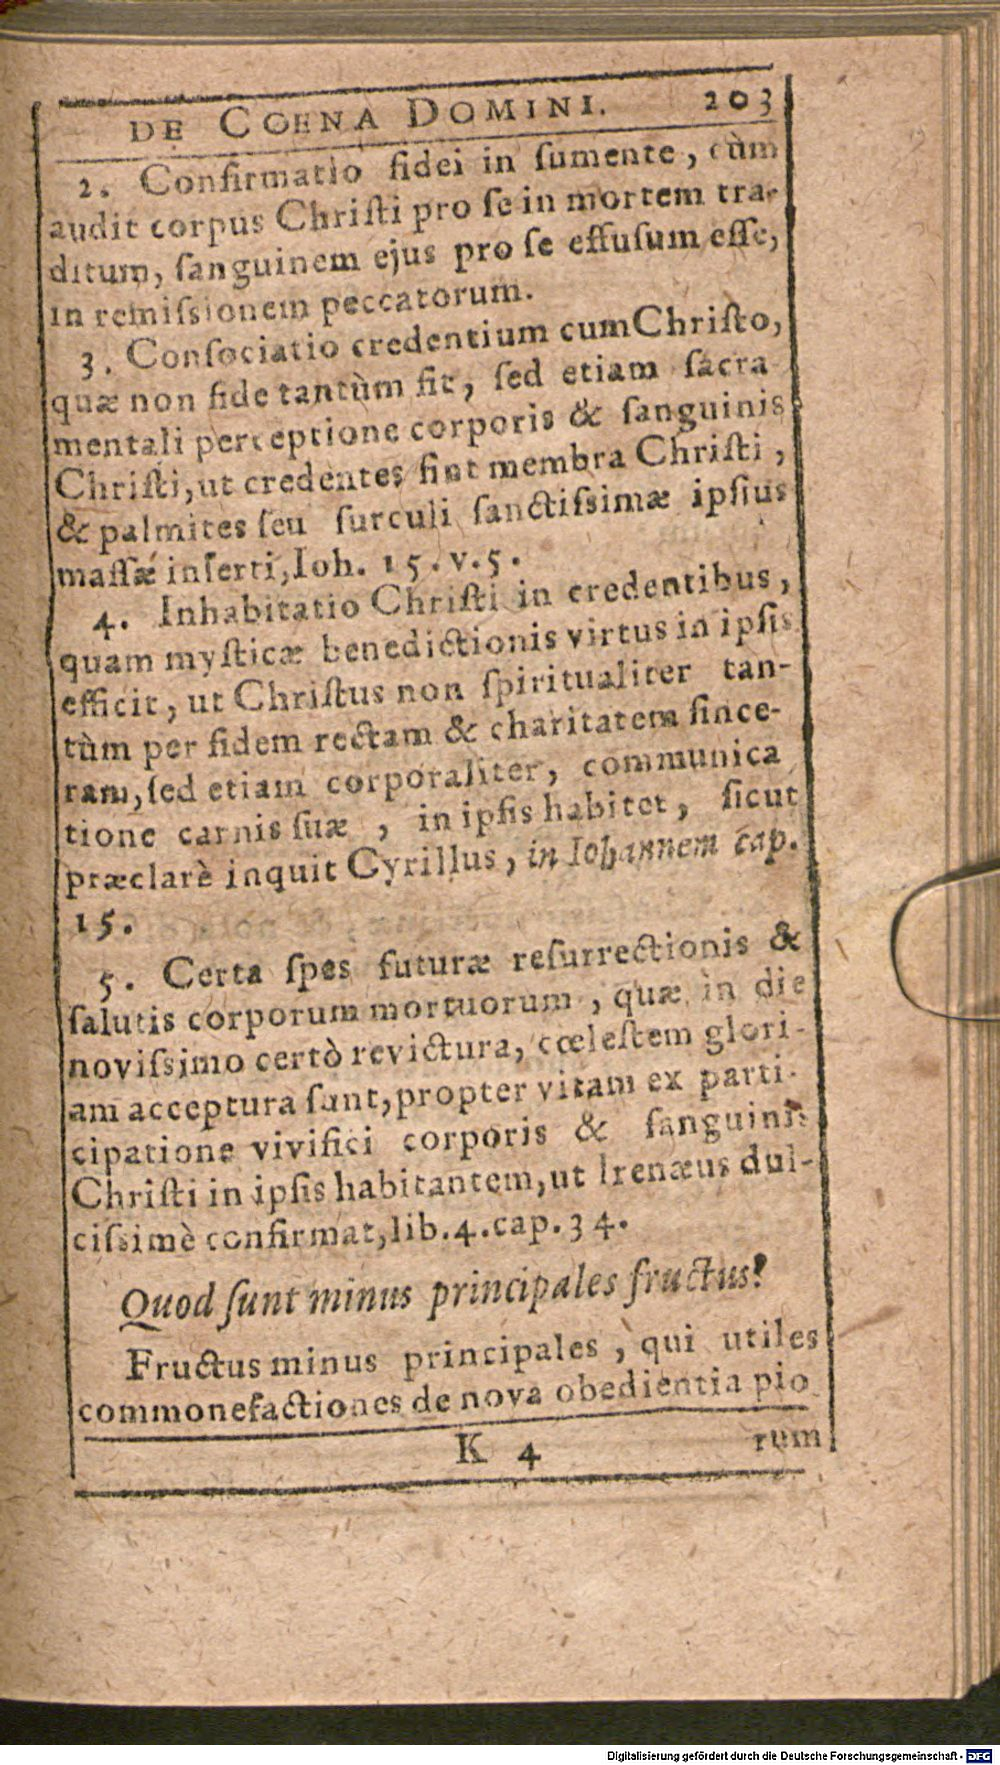 DE COENA DOMINI. 203
2. Confirmatio fidei in ſumente, cùm
audit corpus Chriſti pro ſe in mortem tra-
ditum, ſanguinem ejus pro ſe effuſum eſſe,
in remiſsionem peccatorum.
3. Conſociatio credentium cum Chriſto,
quæ non fide tantùm fit, ſed etiam ſacra
mentali perceptione corporis & ſanguinis
Chriſti, ut credentes ſint membra Chriſti,
& palmites ſeu ſurculi ſanctiſsimæ ipſius
maſſæ inſerti, Ioh. 15. v. 5.
4. Inhabitatio Chriſti in credentibus,
quam myſticæ benedictionis virtus in ipſis
efficit, ut Chriſtus non ſpiritualiter tan-
tùm per fidem rectam & charitatem ſince-
ram, ſed etiam corporaliter, communica
tione carnis ſuæ, in ipſis habitet, ſicut
præclarè inquit Cyrillus, in Iohannem cap.
15.
5. Certa ſpes futuræ reſurrectionis &
ſalutis corporum mortuorum, quæ in die
noviſsimo certò revictura, cœleſtem glori-
am acceptura ſunt, propter vitam ex parti-
cipatione vivifici corporis & ſanguinis
Chriſti in ipſis habitantem, ut Irenæus dul-
ciſsimè confirmat, lib. 4. cap. 34.
Quod ſunt minus principales fructus?
Fructus minus principales, qui utiles
commonefactiones de nova obedientia pio
K 4 rum
Digitalisierung gefördert durch die Deutsche Forschungsgemeinschaft - DFG